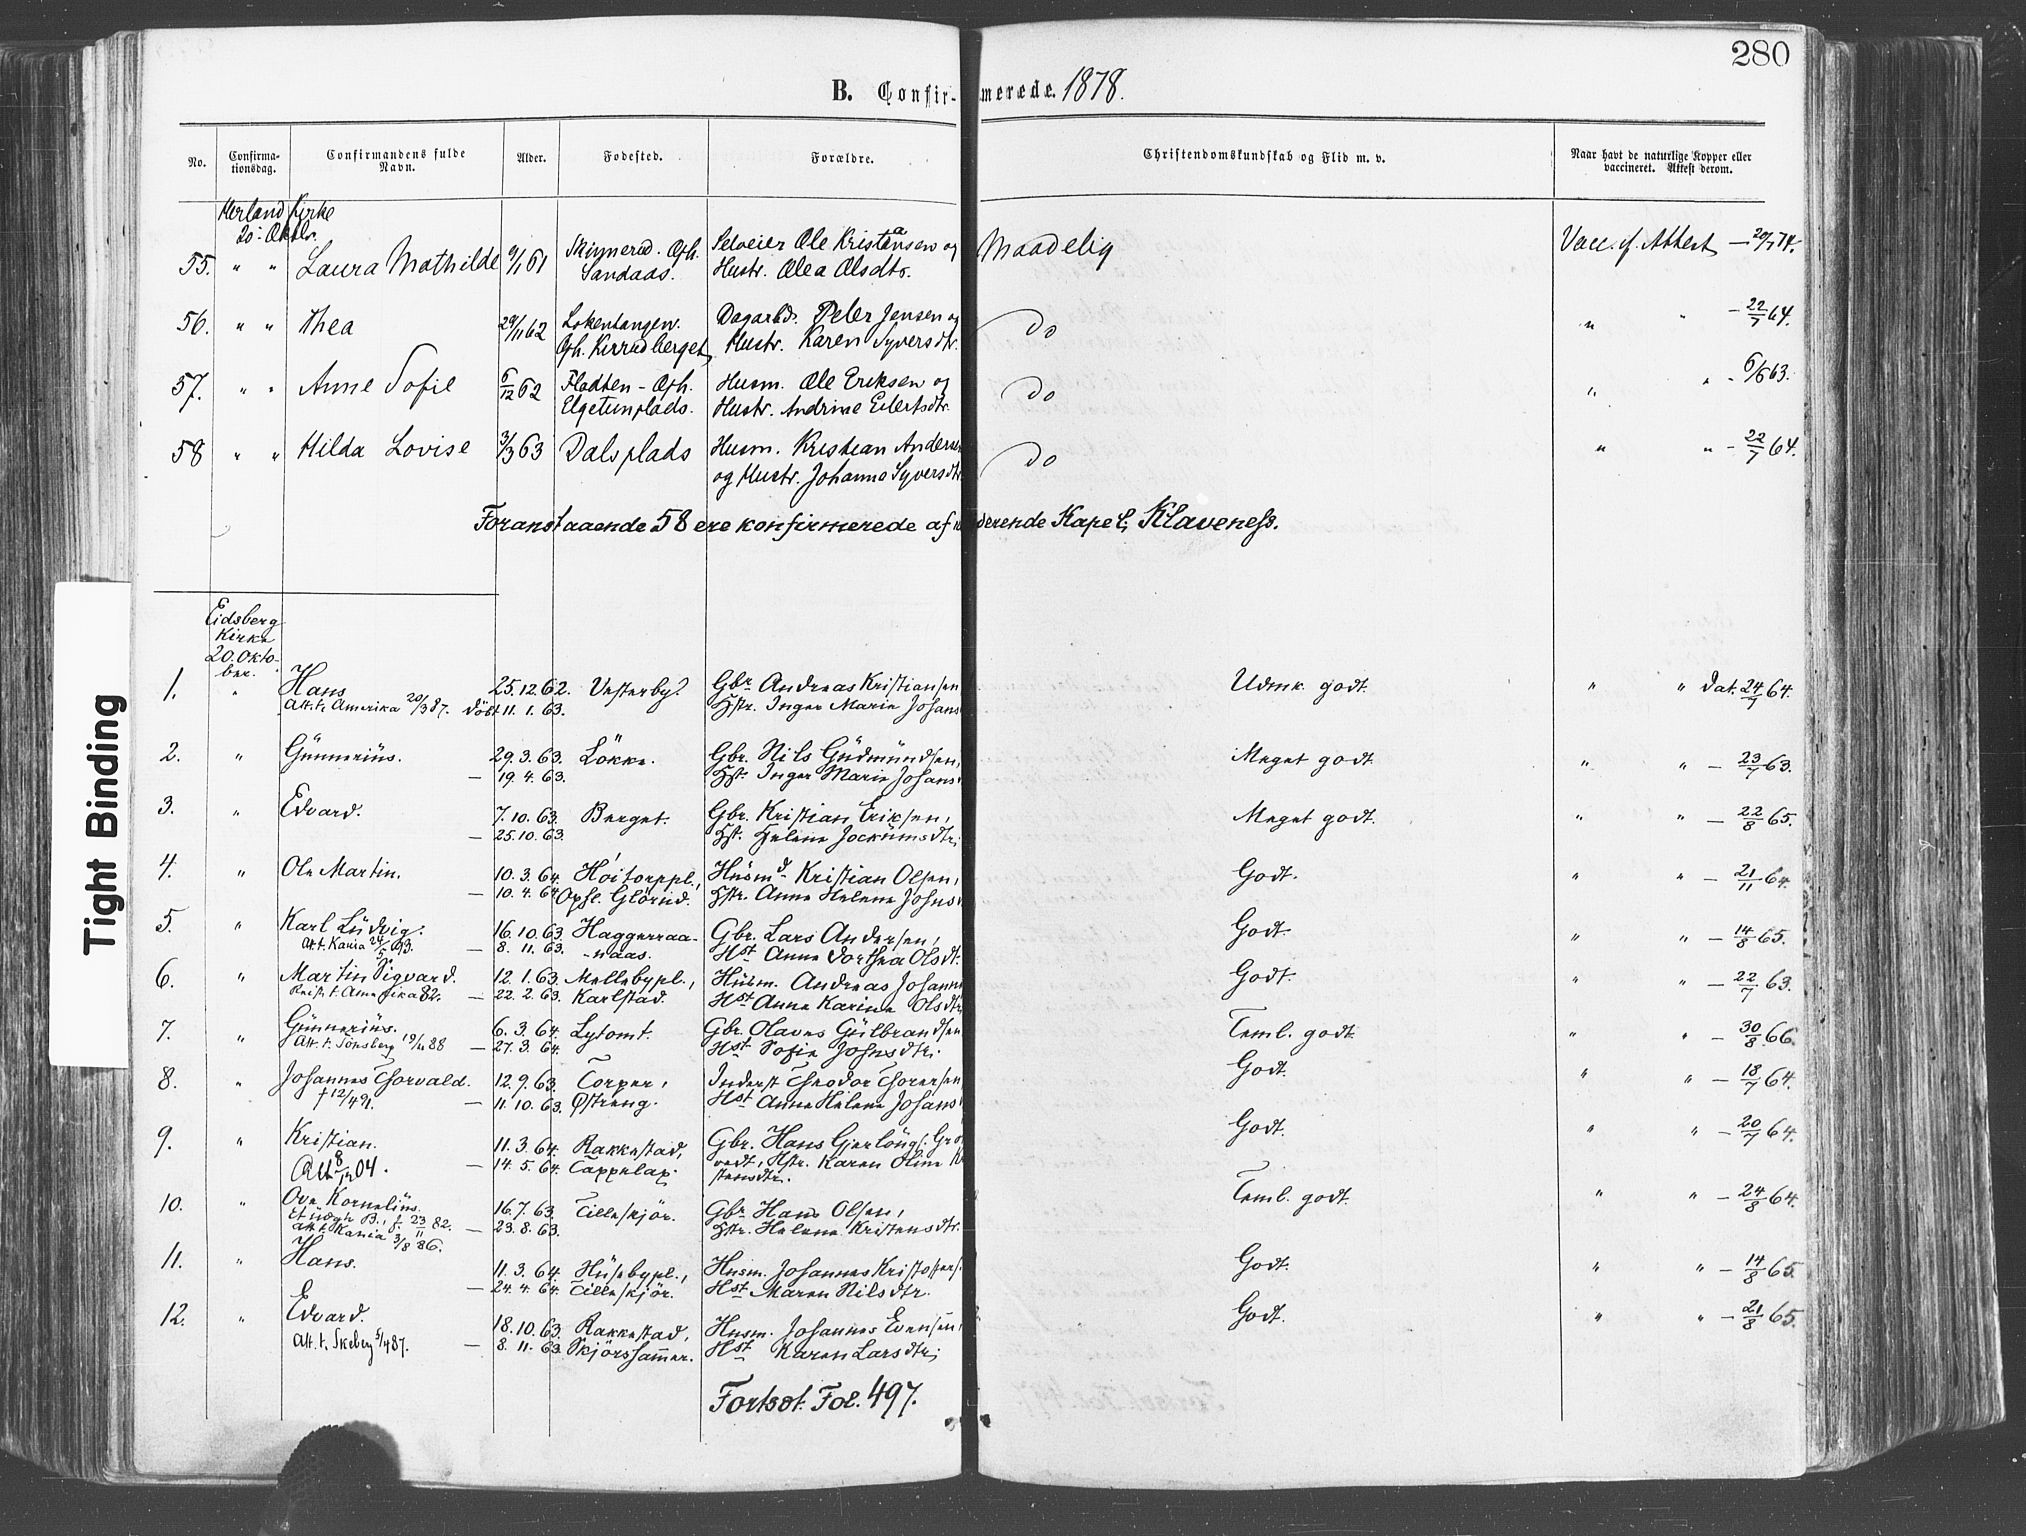 280
B. Confir-merede. 1878.
No. Confirma-tionsdag. Confirmandens fulde Navn. Alder. Fødested. Forældre. Christendomskundskab og Flid m. v. Naar havt de naturlige Kopper eller vaccineret. Attest derom.
Herland Kirke
20: Oktbr.
55. " " Laura Mathilde 9/1 61 Skinnerud. Oph. Selveier Ole Kristiansen og Maadelig Vacc. if. Attest — 20/7 74.
Sandaas. Hustr. Olea Olsdtr.
56. " " Thea 29/11 62 Lokentangen. Dagarbd. Peter Jensen og do " " — 22/7 64.
Oph. Kirrudberget Hustr. Karen Syversdtr.
57. " " Anne Sofie 6/12 62 Fladten - Oph. Husm. Ole Eriksen og do " " - 6/6 63.
Elgetunplads. Hustr. Andrine Eilertsdtr.
58 " " Hilda Lovise 3/3 63 Dalsplads Husm. Kristian Anders do " " - 22/7 64.
og Hustr. Johanne Syversdtr
Foranstaaende 58 ere konfirmerede af derende Kapel. Klaveness.
Eidsberg
Kirke
20. Okto-
ber.
1. " Hans 25.12.62. Vesterby? Gbr Andreas Kristiansen Udmk. godt. " " Dat. 24/7 64.
Att. t. Amerika 20/3 87. Döbt 11. 1. 63. Hstr. Inger Marie Johans
2. " Günnerius. 29. 3. 63. Lökke. Gbr. Nils Gudmundsen, Meget godt " " — 23/7 63.
— 19. 4. 63. Hst. Inger Marie Johans
3. " Edvard. 7. 10. 63. Berget. Gbr. Kristian Eriksen, Meget godt. " " — 22/8 65.
— 25. 10. 63. Hst. Helene Jockumsdtr;
4. " Ole Martin. 10. 3. 64. Höitorppl., Husmd Kristian Olsen, Godt. " " — 21/11 64.
— 10. 4. 64 Opfl. Glörud. Hstr. Anne Helene Johns
5. " Karl Ludvig. 16. 10. 63. Haggerraa- Gbr. Lars Andersen, Godt. " " — 14/8 65.
Att. Kania 24/5 93. — 8. 11. 63. -naas. Hst Anne Dorthea Olsdt.
6. " Martin Sigvard. 12. 1. 63. Mellebypl., Husm. Andreas Johann Godt. " " — 22/7 63.
Reist t. Amerika 82. — 22. 2. 63. Karlstad. Hst Anne Karine Olsdtr
7. " Günnerius. 6. 3. 64. Lytomt. Gbr. Olaves Gulbrandsen Teml. godt. " " — 30/8 66.
Att. t. Tönsberg 19/4 88 — 27. 3. 64. Hst Sofie Johnsdtr;
8. " Johannes Thorvald. 12. 9. 63. Torper, Inderst Theodor Thoresen Godt. " " — 18/7 64.
† 12/4 91. — 11. 10. 63. Østreng. Hst Anne Helene Johans
9. " Kristian. 11. 3. 64. Rakkestad, Gbr. Hans Gjerlöugs. Gro Godt. " " — 20/7 64.
Att 8/12 04. — 14. 5. 64. Tappelax. vedt, Hstr. Karen Oline K
stensdtr.
10. " Ove Kornelius. 16. 7. 63. Tilleskjör. Gbr Hans Olsen, Teml. godt. " " — 24/8 64.
B., f. 23/11 82. — 23. 8. 63. Hstr. Helene Kristensdtr.
Att. t. Kania 3/8 86.
11. " Hans. 11. 3. 64. Husebypl., Husm. Johannes Kristoffers. Godt. " " — 14/8 65.
— 24. 4. 64. Tilleskjör. Hst Maren Nilsdtr.
12. " Edvard. 18. 10. 63. Rakkestad, Husm. Johannes Evensen, Godt. " " — 21/8 65.
Att. t. Skeberg 5/4 87. — 8. 11. 63 Skjörshammer. Hst Karen Larsdtr;
Fortsat Fol. 497.
Tight Binding